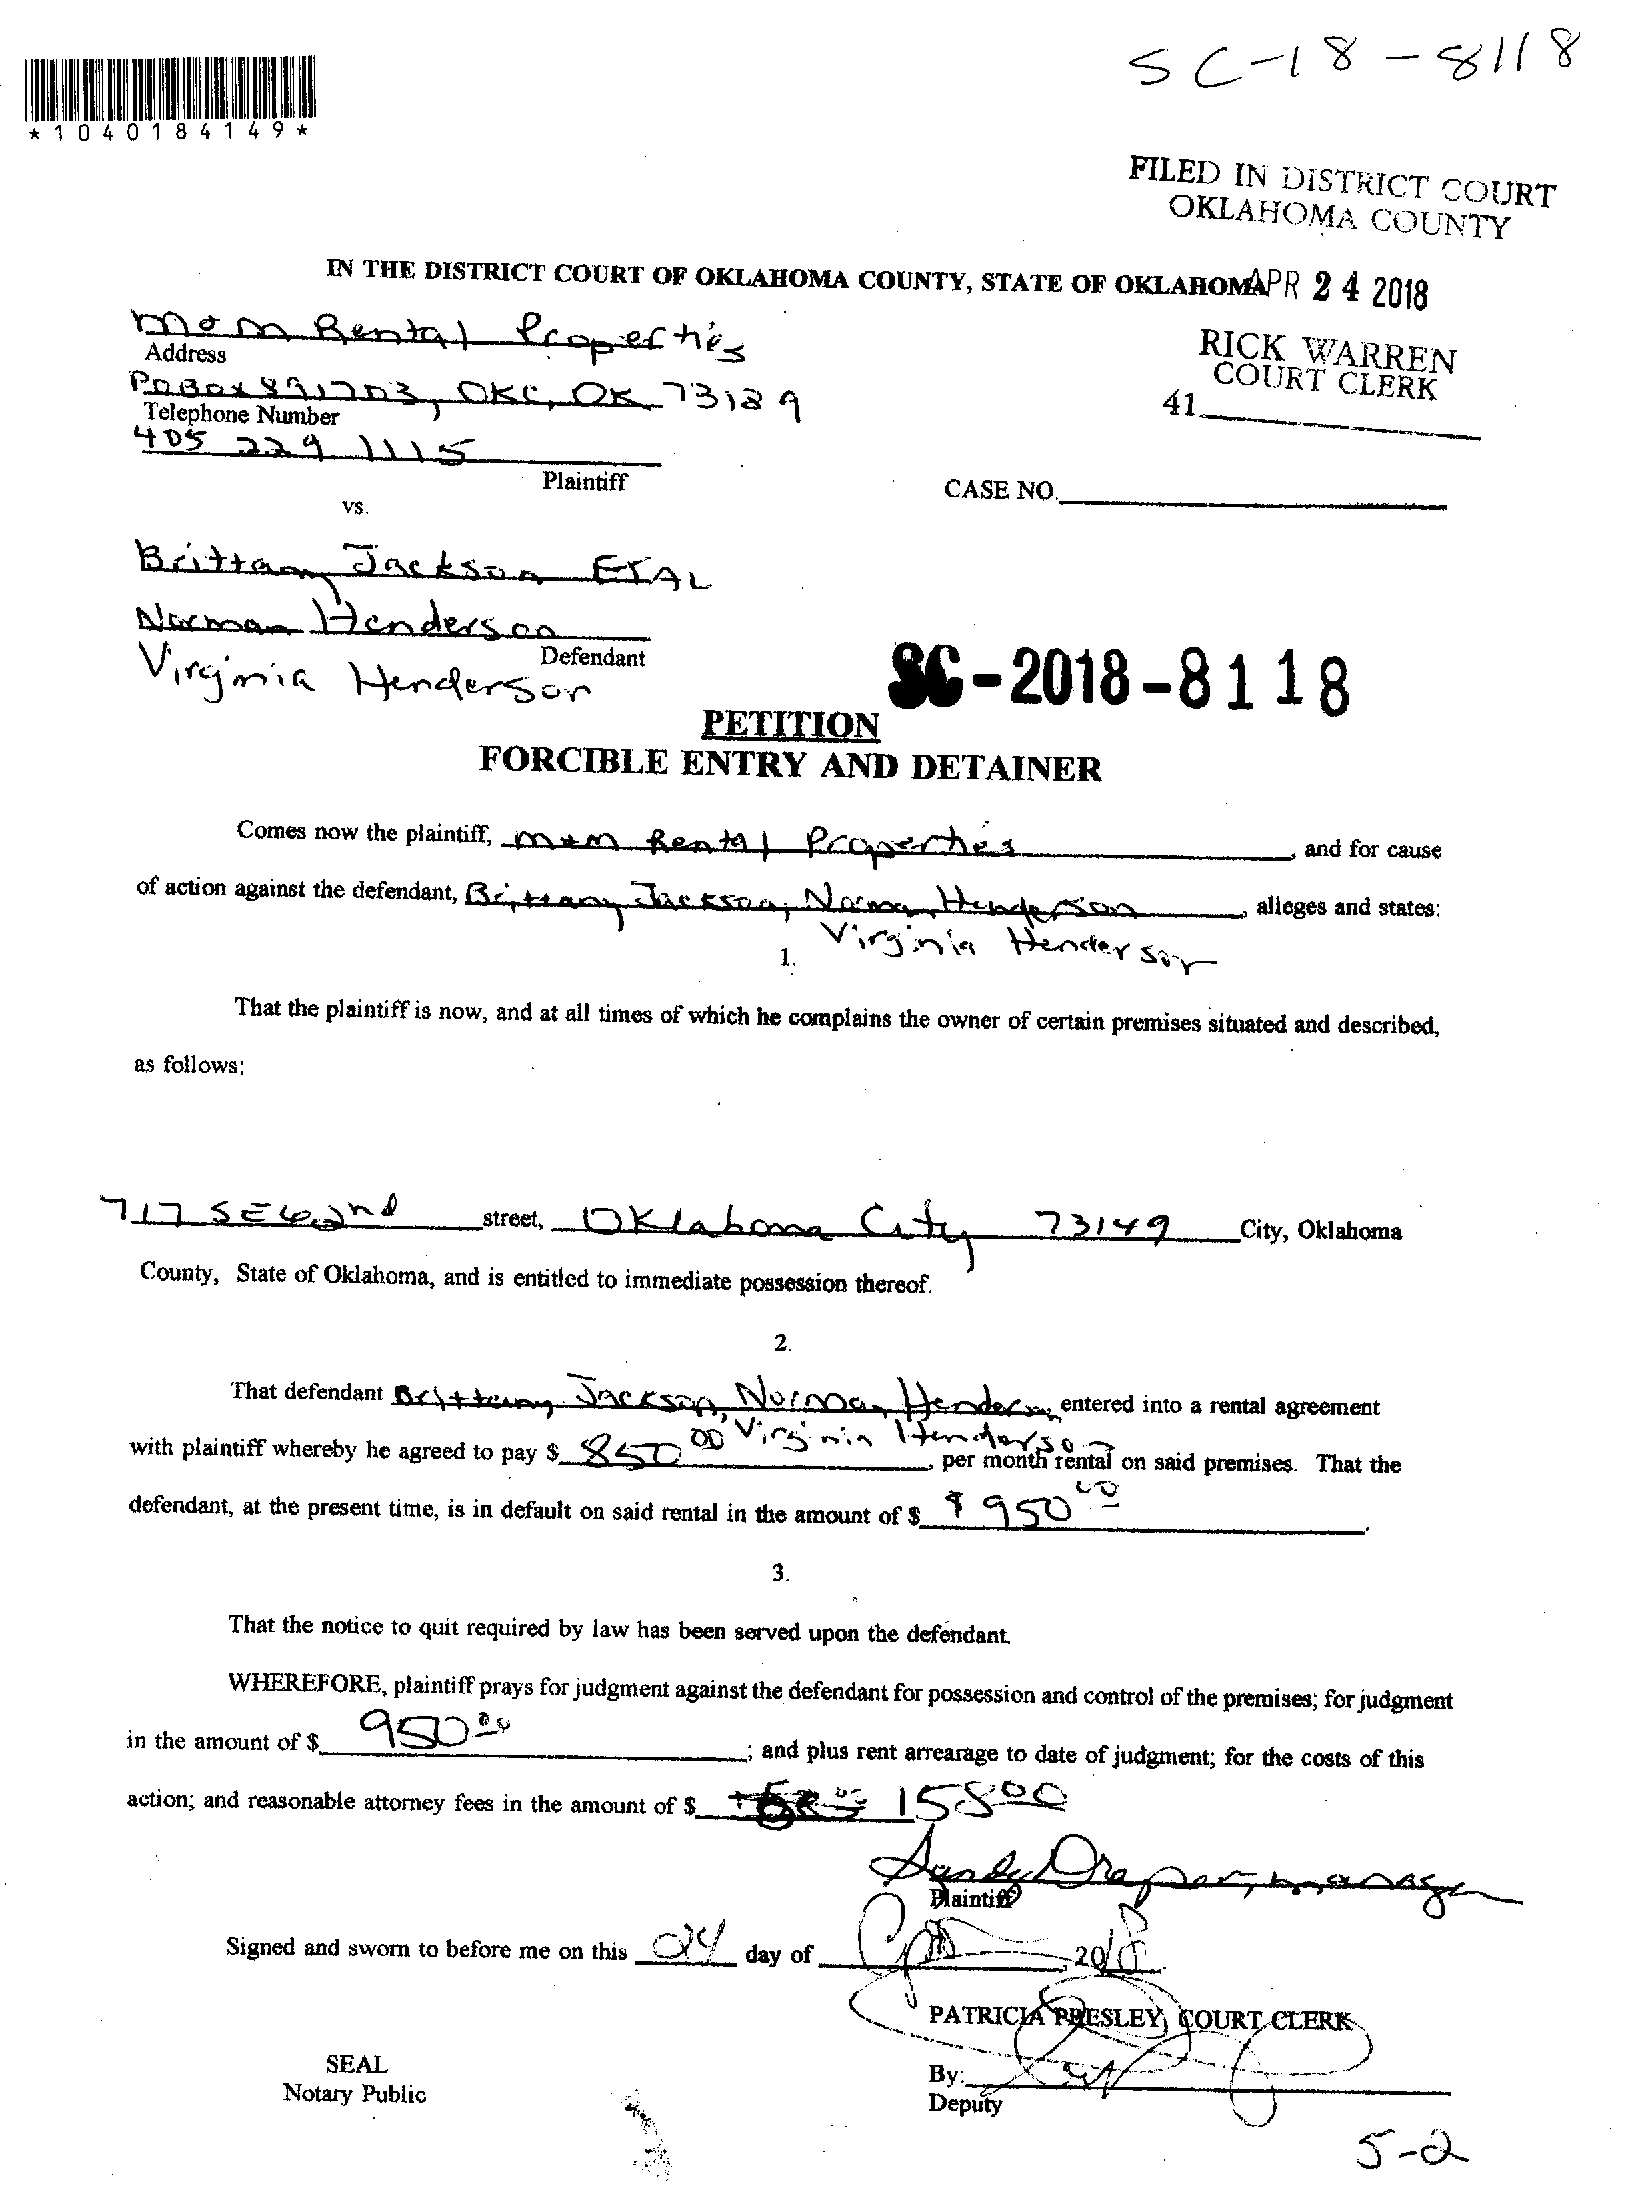 SC-18-8118
*1040184149*
FILED IN DISTRICT COURT
OKLAHOMA COUNTY
IN THE DISTRICT COURT OF OKLAHOMA COUNTY, STATE OF OKLAHOMA
APR 24 2018
M+M Rental Properties
Address
PO Box 891703, OKC, OK 73189
Telephone Number
405 229 1115
Plaintiff
RICK WARREN
COURT CLERK
41
CASE NO.
vs.
Brittany Jackson ETAL
Norman Henderson
Defendant
Virginia Henderson
SC-2018-8118
PETITION
FORCIBLE ENTRY AND DETAINER
Comes now the plaintiff, M+M Rental Properties, and for cause
of action against the defendant, Brittany Jackson, Norman Henderson, alleges and states:
Virginia Henderson
1.
That the plaintiff is now, and at all times of which he complains the owner of certain premises situated and described,
as follows:
717 SE 62nd street, Oklahoma City 73149 City, Oklahoma
County, State of Oklahoma, and is entitled to immediate possession thereof.
2.
That defendant Brittany Jackson, Norman Henderson, entered into a rental agreement
Virginia Henderson
with plaintiff whereby he agreed to pay $ 850 00, per month rental on said premises. That the
defendant, at the present time, is in default on said rental in the amount of $ $950 00.
3.
That the notice to quit required by law has been served upon the defendant.
WHEREFORE, plaintiff prays for judgment against the defendant for possession and control of the premises; for judgment
in the amount of $ 950 00; and plus rent arrearage to date of judgment; for the costs of this
action; and reasonable attorney fees in the amount of $ 158 00
Sandy Draper, manager
Plaintiff
Signed and sworn to before me on this 24 day of 2018
PATRICIA PRESLEY, COURT CLERK
SEAL
Notary Public
By:
Deputy
5-2